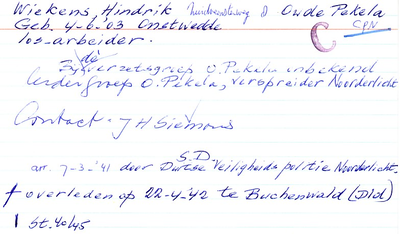 Wiekens Hindrik Hendrikstraat 8 Oude Pekela
Geb. 4-6-'03 Onstwedde C CPN
los-arbeider.
de
verzetsgroep O. Pekela onbekend
Ondergroep O. Pekela, verspreider Noorderlicht
Contact - J H Siemons
S.D.
arr. 7-3-'41 door Duitse Veiligheidspolitie Noorderlicht.
† overleden op 22-4-'42 te Buchenwald (Dld)
St. 40/45